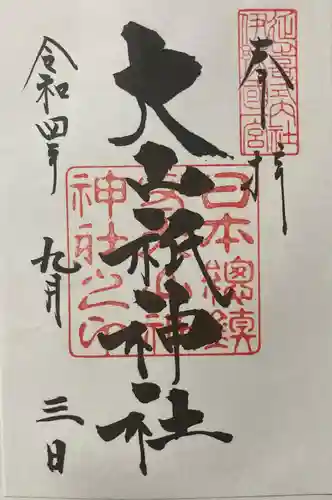 奉拝
延喜式社
伊豫一宮
大山祇神社
日本總鎮
守大山祇
神社之印
令和四年
九月
三日